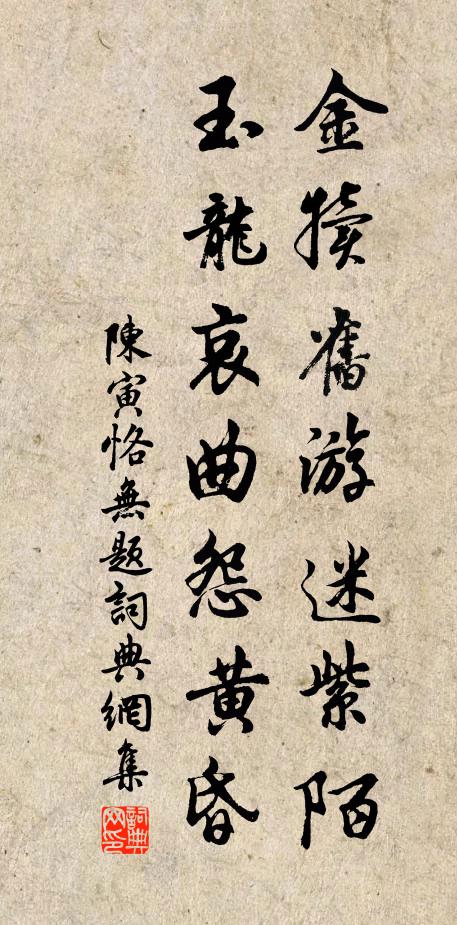 金犢舊游迷紫陌
玉龍哀曲怨黃昏
陳寅恪無題詞典網集
詞典网印